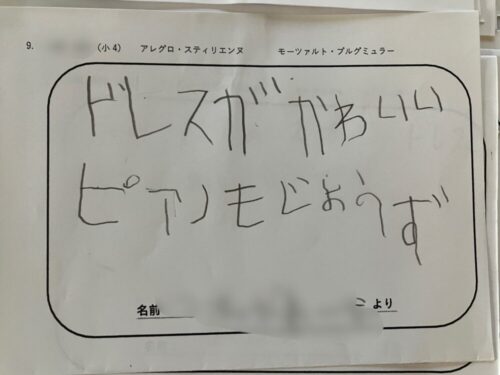 9. (小4) アレグロ・スティリエンヌ モーツァルト・ブルグミュラー
ドレスが かわいい
ピアノもじょうず
名前 こ より